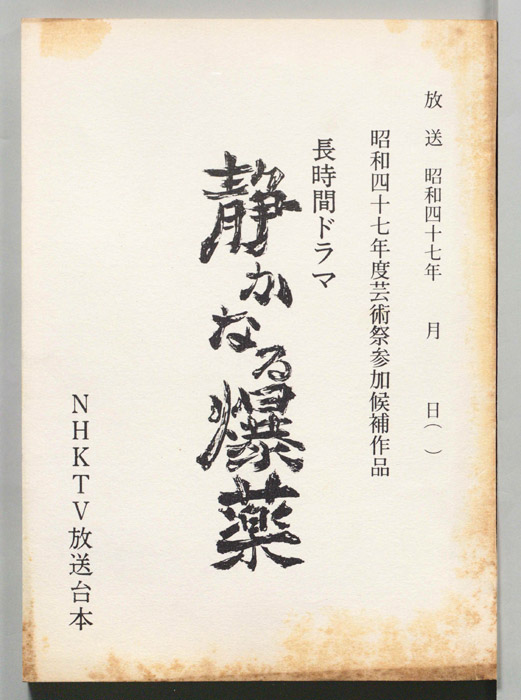 放送　昭和四十七年　　月　　日（　）
昭和四十七年度芸術祭参加候補作品
長時間ドラマ
静かなる爆薬
NHKTV放送台本